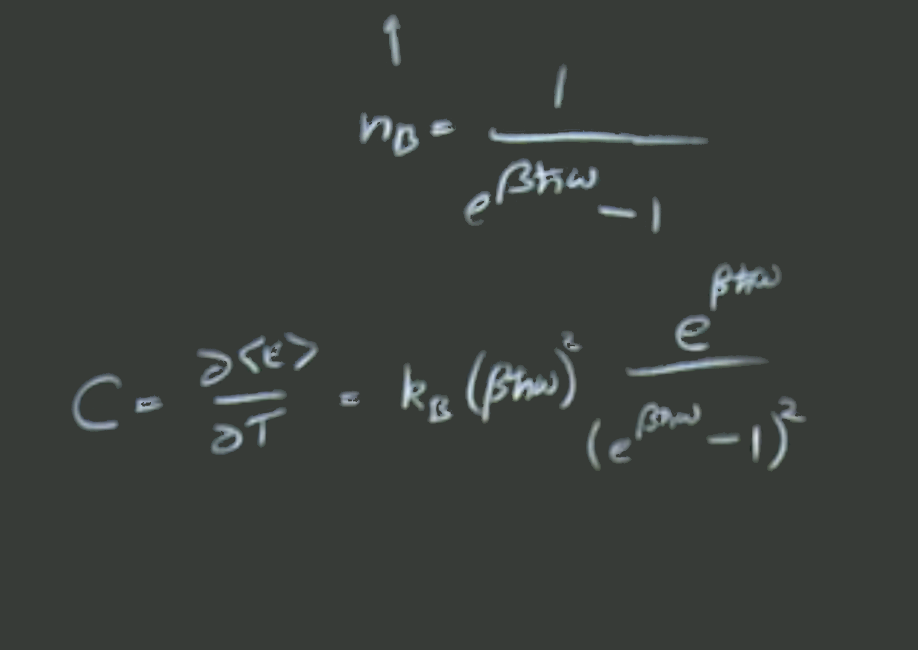 ↑
n_B = 1 / (e^{βħω} − 1)
C = ∂⟨E⟩/∂T = k_B (βħω)² e^{βħω} / (e^{βħω} − 1)²